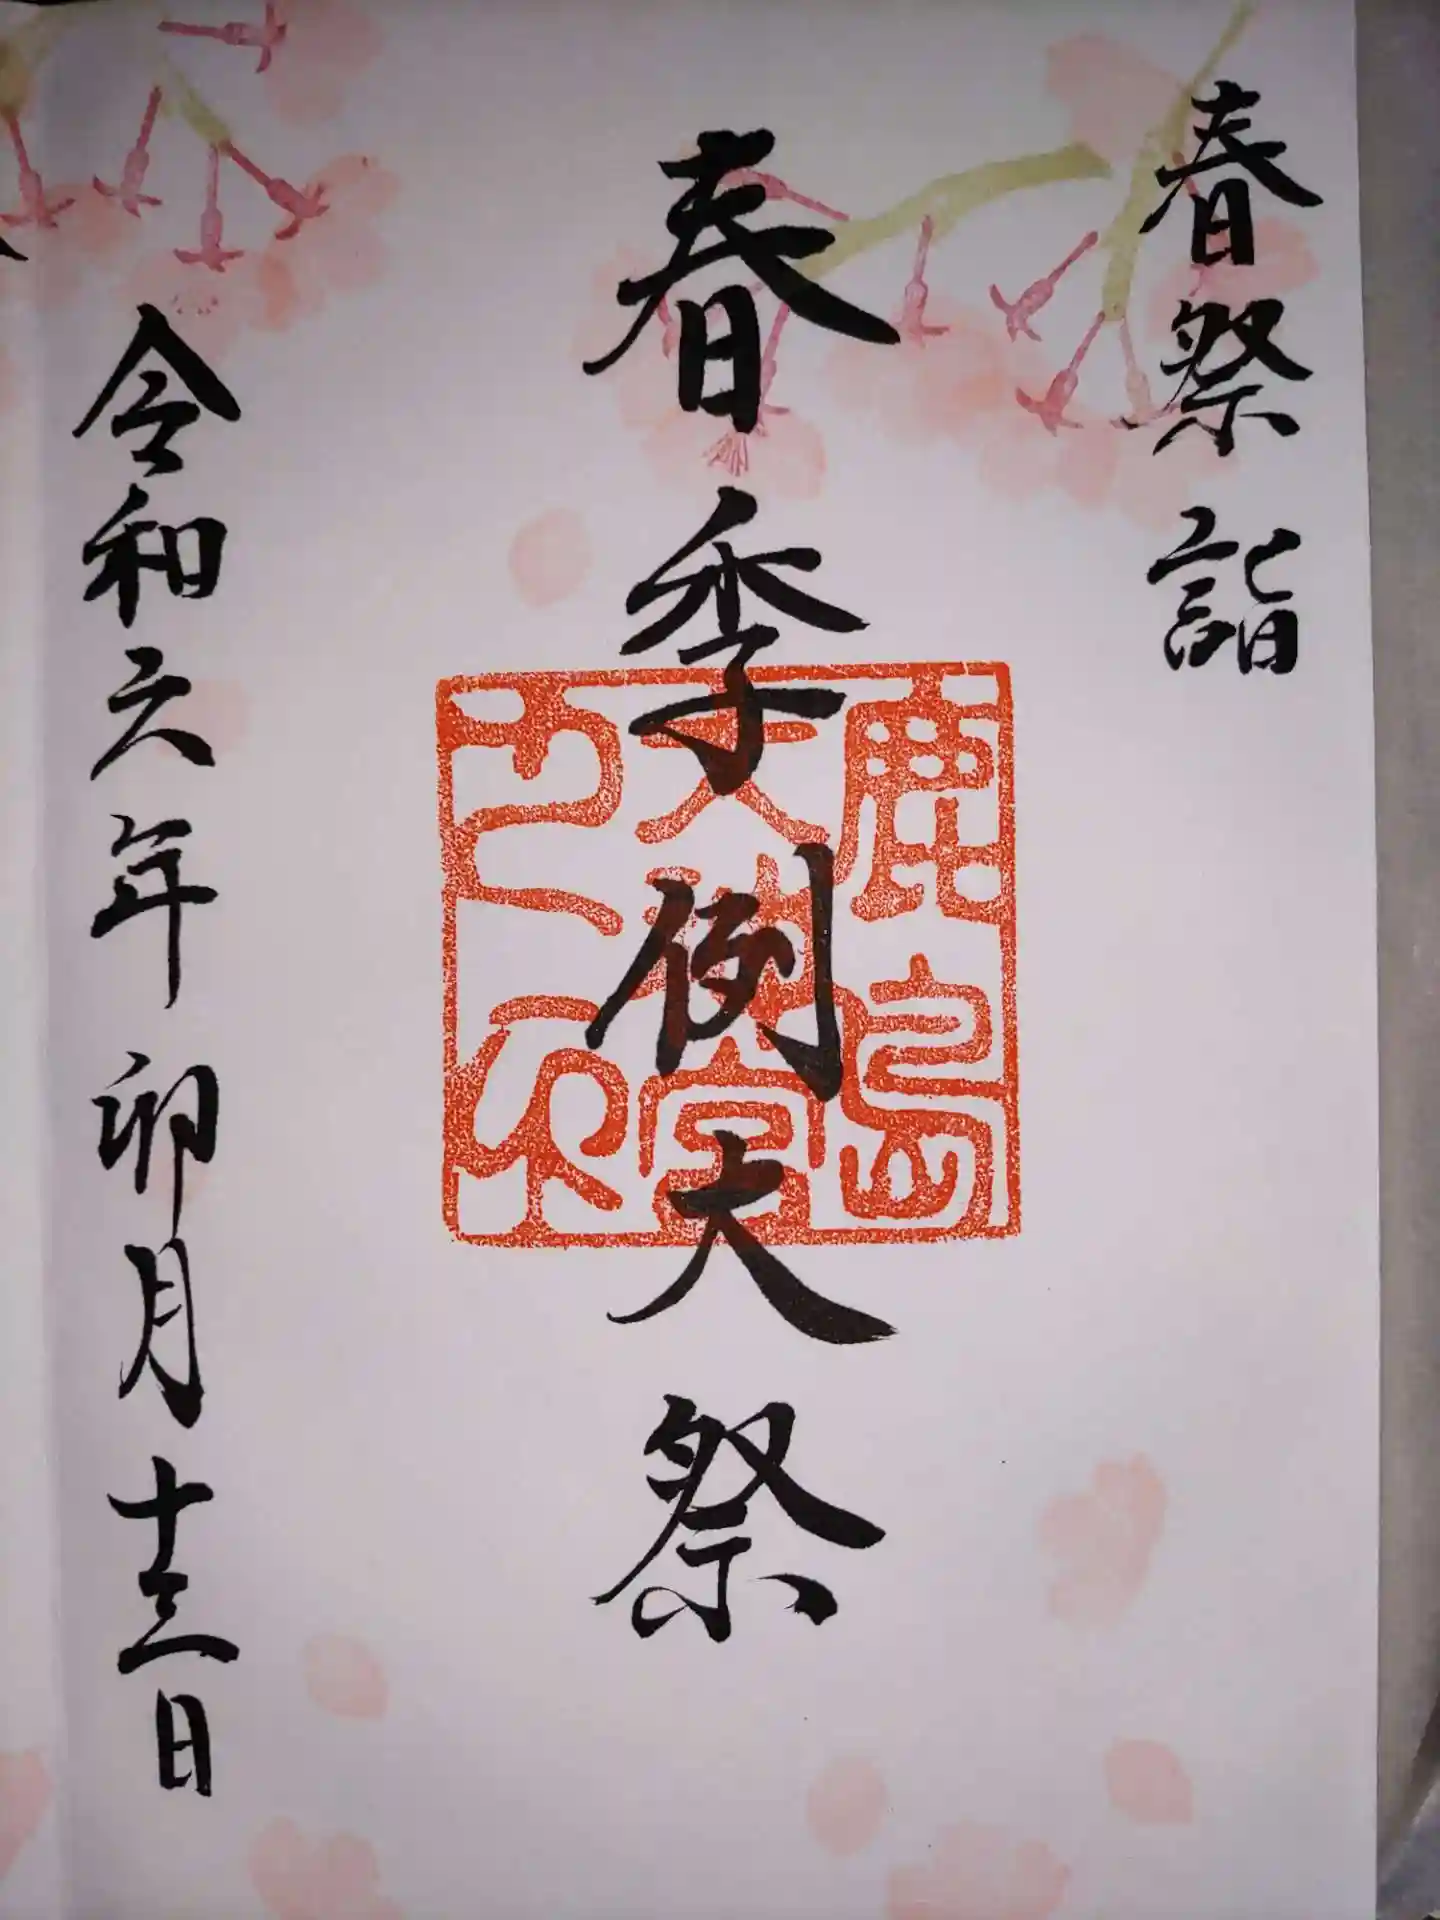 春祭詣
春季例大祭
鹿島
天神宮
之印
令和六年 卯月十三日